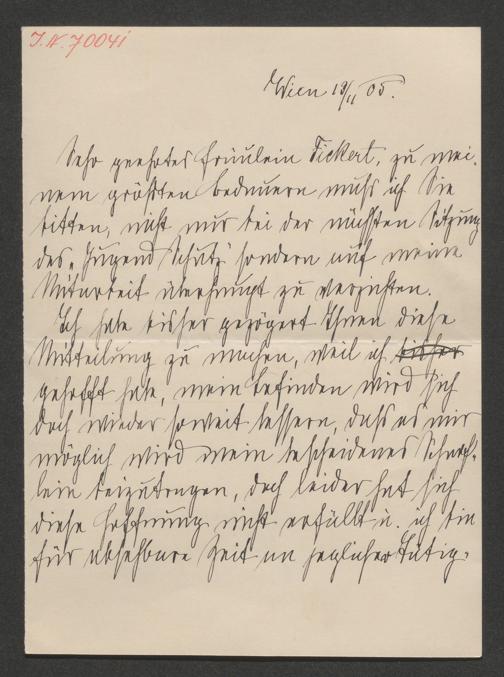 I.N. 70041
Wien 18/II 05.
Sehr geehrtes Fräulein Fickert, zu mei-
nem größten Bedauern muß ich Sie
bitten, nicht nur bei der nächsten Sitzung
des „Jugend Schutz" sondern auf meine
Mitarbeit überhaupt zu verzichten.
Ich habe bisher gezögert Ihnen diese
Mitteilung zu machen, weil ich bisher
gehofft habe, mein Befinden wird sich
doch wieder soweit bessern, daß es mir
möglich wird mein bescheidenes Scherf-
lein beizutragen, doch leider hat sich
diese Hoffnung nicht erfüllt u. ich bin
für absehbare Zeit an jeglicher Tätig-